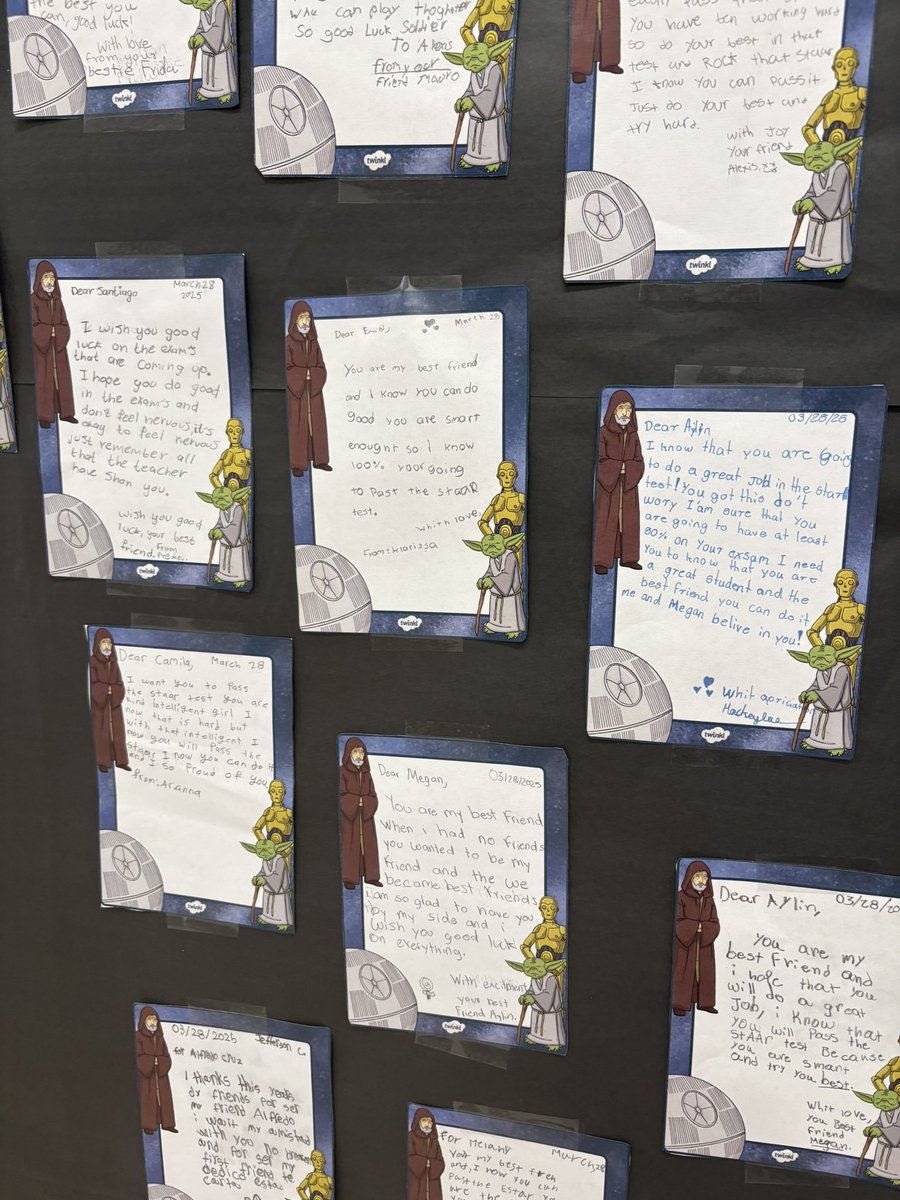 the best you
can, good luck!
With love
from your
bestie Frida!
twinkl
who can play thoghter
So good Luck Soldier
To Akons
from your
friend Mauro
twinkl
You have ten working hard
so do your best in that
test and Rock that Staar
I know you can pass it
Just do your best and
try hard.
with Joy
Your friend
Alexis.
twinkl
Dear Santiago
March 28
2025
I wish you good
luck on the exam's
that are coming up.
I hope you do good
in the exam's and
don't feel nervous, it's
okay to feel nervous
just remember all
that the teacher
have shon you.
Wish you good
luck, your best
friend, From
twinkl
Dear
March 28
You are my best friend
and I know you can do
good you are smart
enought so i know
100% your going
to past the staaR
test.
Whith love,
From: klarissa
twinkl
Dear Aylin
03/28/25
I know that you are going
to do a great job in the staar
test! You got this don't
wory I'am sure that you
are going to have at least
80% on your exsam I need
you to know that you are
a great student and the
best friend you can do it
me and Megan belive in you!
Whit
twinkl
Dear Camila, March 28
I want you to Pass
the staar test you are
kind intelligent girl I
now that is hard but
with that intelligent I
now you will pass the
Staar I now you can do it
and I so Proud of you
from: Aranna
twinkl
Dear Megan,
03/28/2025
You are my best friend
When i had no friends
you wanted to be my
friend and the we
became best friends
i am so glad to have you
by my side and i
wish you good luck
on everything.
With
your best
Friend Aylin.
twinkl
Dear Aylin,
03/28/20
You are my
best friend and
i hope that you
will do a great
Job, i know that
you will Pass the
StAAr test Because
you are smant
and try you best.
Whit love,
You Best
Friend
Megan.
twinkl
03/28/2025 Jefferson C.
for Alfredo Cruz
I thanks this year
dy friends por ser
my friend Alfredo
with you no
and por ser my
first friend te
dedico esta
carta
for Melany
March 28
You my best
and, i now you can
Pas the Estar
are the